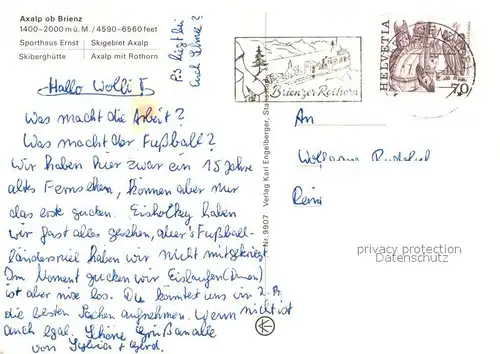 Axalp ob Brienz
1400–2000 m ü. M. / 4590–6560 feet
Sporthaus Ernst Skigebiet Axalp
Skiberghütte Axalp mit Rothorn
P.S liegt bei Euch Schnee?
Hallo Wolli!
Was macht die Arbeit?
Was macht der Fußball?
Wir haben hier zwar ein 15 Jahre
altes Fernsehen, können aber nur
das erste gucken. Eishockey haben
wir fast alles gesehen, aber's Fußball-
länderspiel haben wir nicht mitgekriegt.
Im Moment gucken wir Eislaufen (Damen)
ist aber nix los. Du könntest uns im 2. Pr.
die besten Sachen aufnehmen. Wenn nicht ist
auch egal. Schöne Grüße an alle
von Sylvia + Gerd.
Nr. 9907 Verlag Karl Engelberger,
Brienzer Rothorn
HELVETIA
70
An
Wolfgang
privacy protection
Datenschutz
K